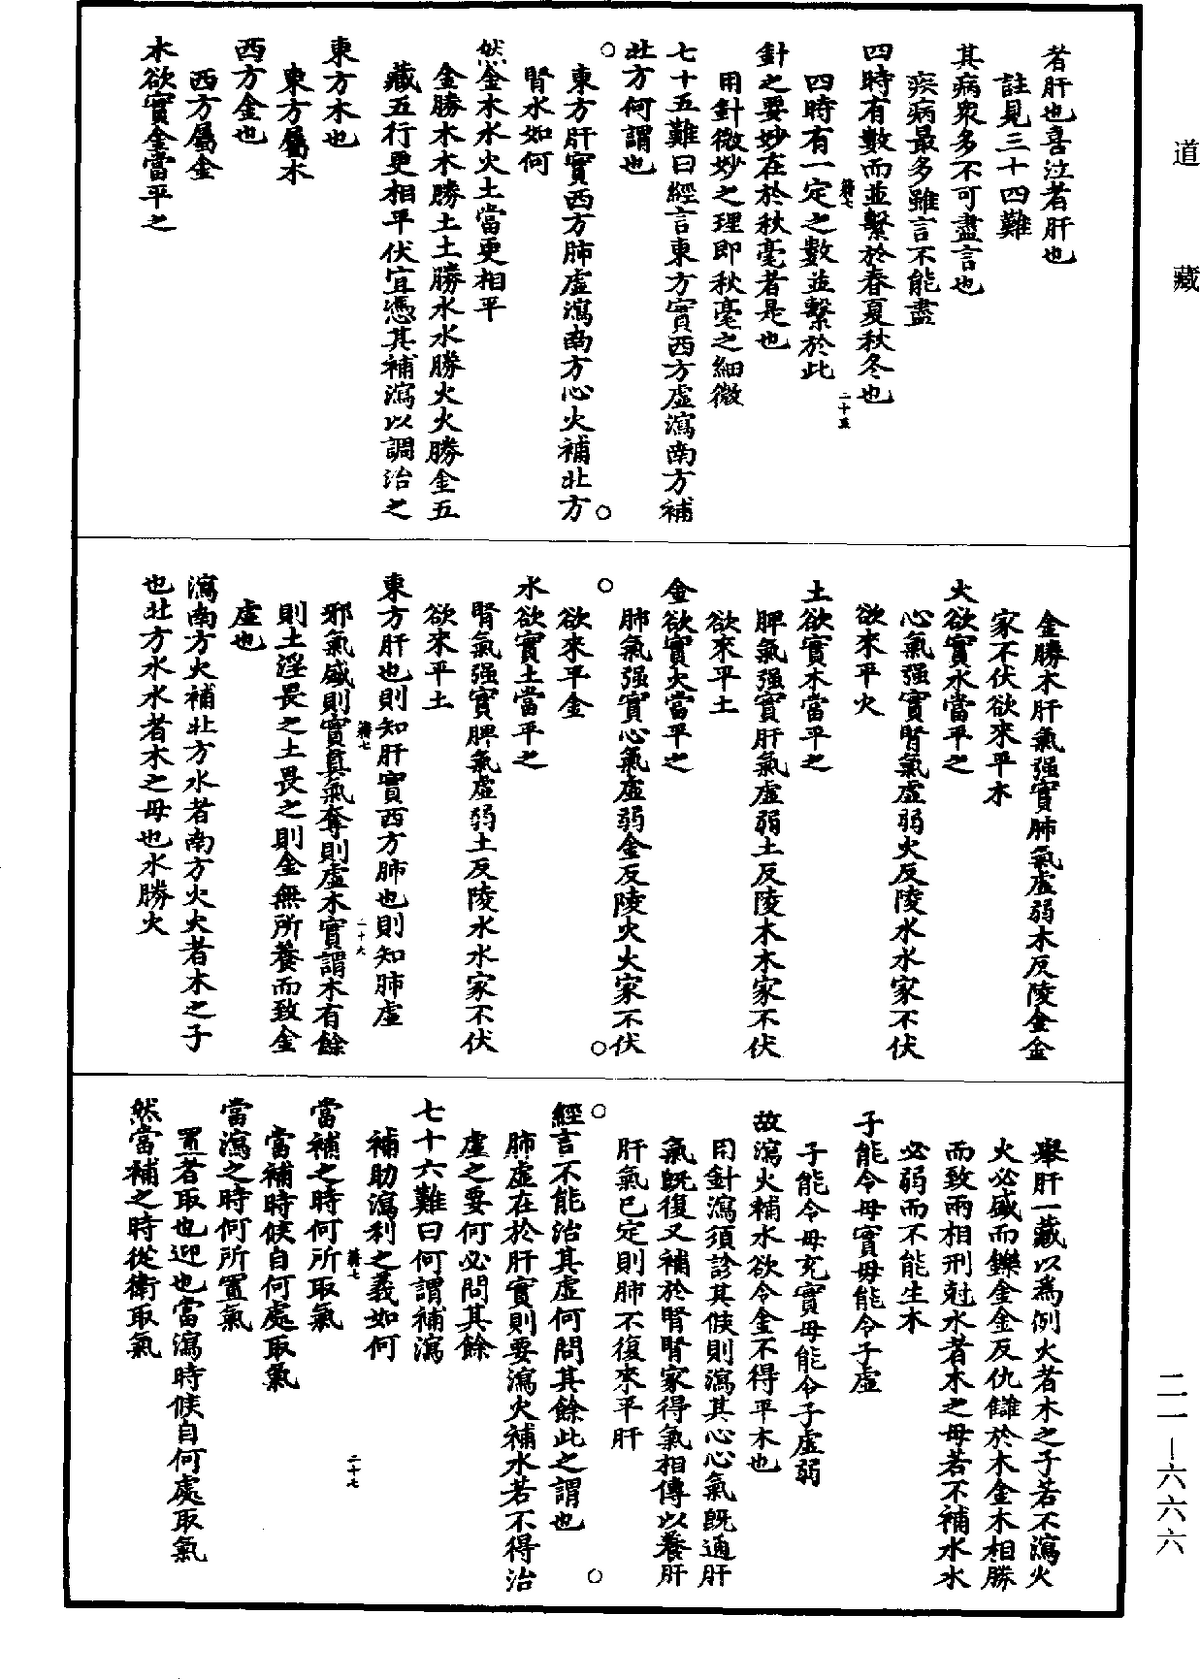 道藏
者肝也喜泣者肝也
註見三十四難
其病衆多不可盡言也
疾病最多雖言不能盡
四時有數而並繫於春夏秋冬也
籍七
二十五
四時有一定之數並繫於此
針之要妙在於秋毫者是也
用針微妙之理即秋毫之細微
七十五難曰經言東方實西方虛瀉南方補
北方何謂也
東方肝實西方肺虛瀉南方心火補北方
腎水如何
然金木水火土當更相平
金勝木木勝土土勝水水勝火火勝金五
藏五行更相平伏宜憑其補瀉以調治之
東方木也
東方屬木
西方金也
西方屬金
木欲實金當平之
金勝木肝氣强實肺氣虛弱木反陵金金
家不伏欲來平木
火欲實水當平之
心氣强實腎氣虛弱火反陵水水家不伏
欲來平火
土欲實木當平之
脾氣强實肝氣虛弱土反陵木木家不伏
欲來平土
金欲實火當平之
肺氣强實心氣虛弱金反陵火火家不伏
欲來平金
水欲實土當平之
腎氣强實脾氣虛弱土反陵水水家不伏
欲來平土
東方肝也則知肝實西方肺也則知肺虛
籍七
二十六
邪氣盛則實眞氣奪則虛木實謂木有餘
則土淫畏之土畏之則金無所養而致金
虛也
瀉南方火補北方水者南方火火者木之子
也北方水水者木之母也水勝火
舉肝一藏以爲例火者木之子若不瀉火
火必盛而鑠金金反仇讎於木金木相勝
而致兩相刑尅水者木之母若不補水水
必弱而不能生木
子能令母實母能令子虛
子能令母充實母能令子虛弱
故瀉火補水欲令金不得平木也
用針瀉須診其候則瀉其心心氣旣通肝
氣旣復又補於腎腎家得氣相傳以養肝
肝氣已定則肺不復來平肝
經言不能治其虛何問其餘此之謂也
肺虛在於肝實則要瀉火補水若不得治
虛之要何必問其餘
七十六難曰何謂補瀉
補助瀉利之義如何
籍七
二十七
當補之時何所取氣
當補時候自何處取氣
當瀉之時何所置氣
置者取也迎也當瀉時候自何處取氣
然當補之時從衛取氣
二一—六六六